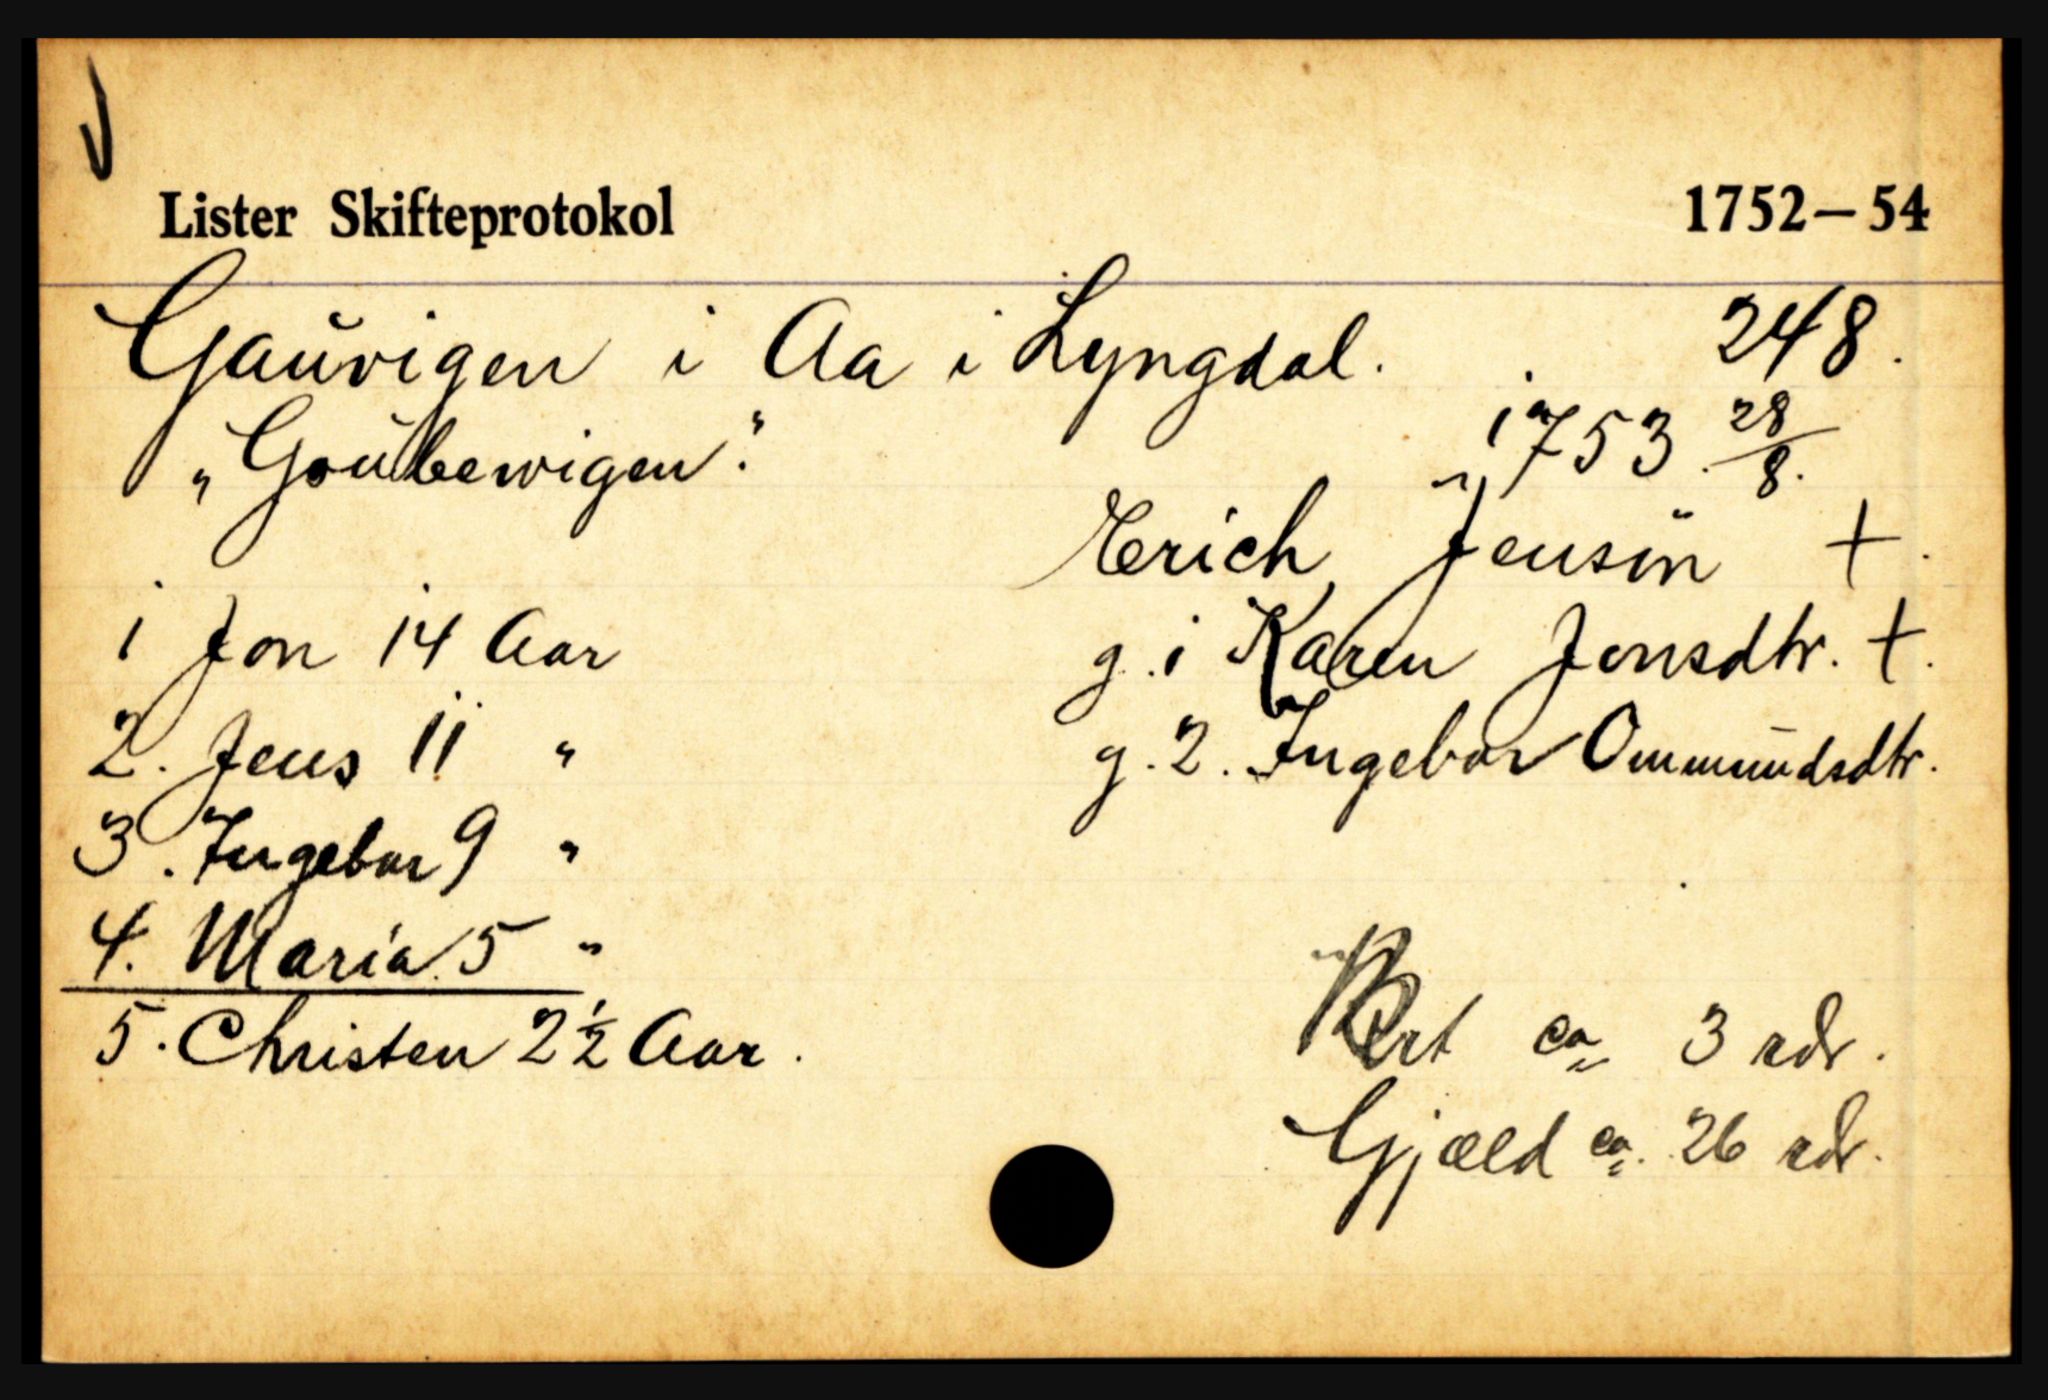 Lister Skifteprotokol 1752–54
Gaüvigen i Aa i Lyngdal. 248.
„Goübewigen".
1753. 28/8.
Erich Jensøn +.
1 Jon 14 Aar
g. 1 Karen Jonsdtr. +.
2. Jens 11 "
g. 2. Ingebor Ommündsdtr.
3. Ingebor 9 "
4. Maria 5 "
5. Christen 2½ Aar.
ca 3 rdr.
Gjæld ca. 26 rdr.